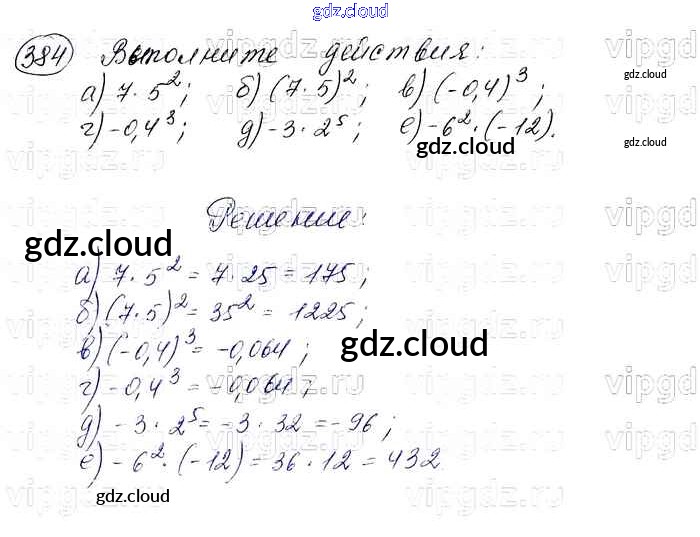 gdz.cloud
384 Выполните действия:
а) 7 · 5²; б) (7 · 5)²; в) (-0,4)³;
г) -0,4³; д) -3 · 2⁵; е) -6² · (-12).
gdz.cloud
gdz.cloud
gdz.cloud
Решение:
gdz.cloud
а) 7 · 5² = 7 · 25 = 175;
б) (7 · 5)² = 35² = 1225;
в) (-0,4)³ = -0,064;
gdz.cloud
г) -0,4³ = -0,064;
д) -3 · 2⁵ = -3 · 32 = -96;
е) -6² · (-12) = 36 · 12 = 432
gdz.cloud
gdz.cloud